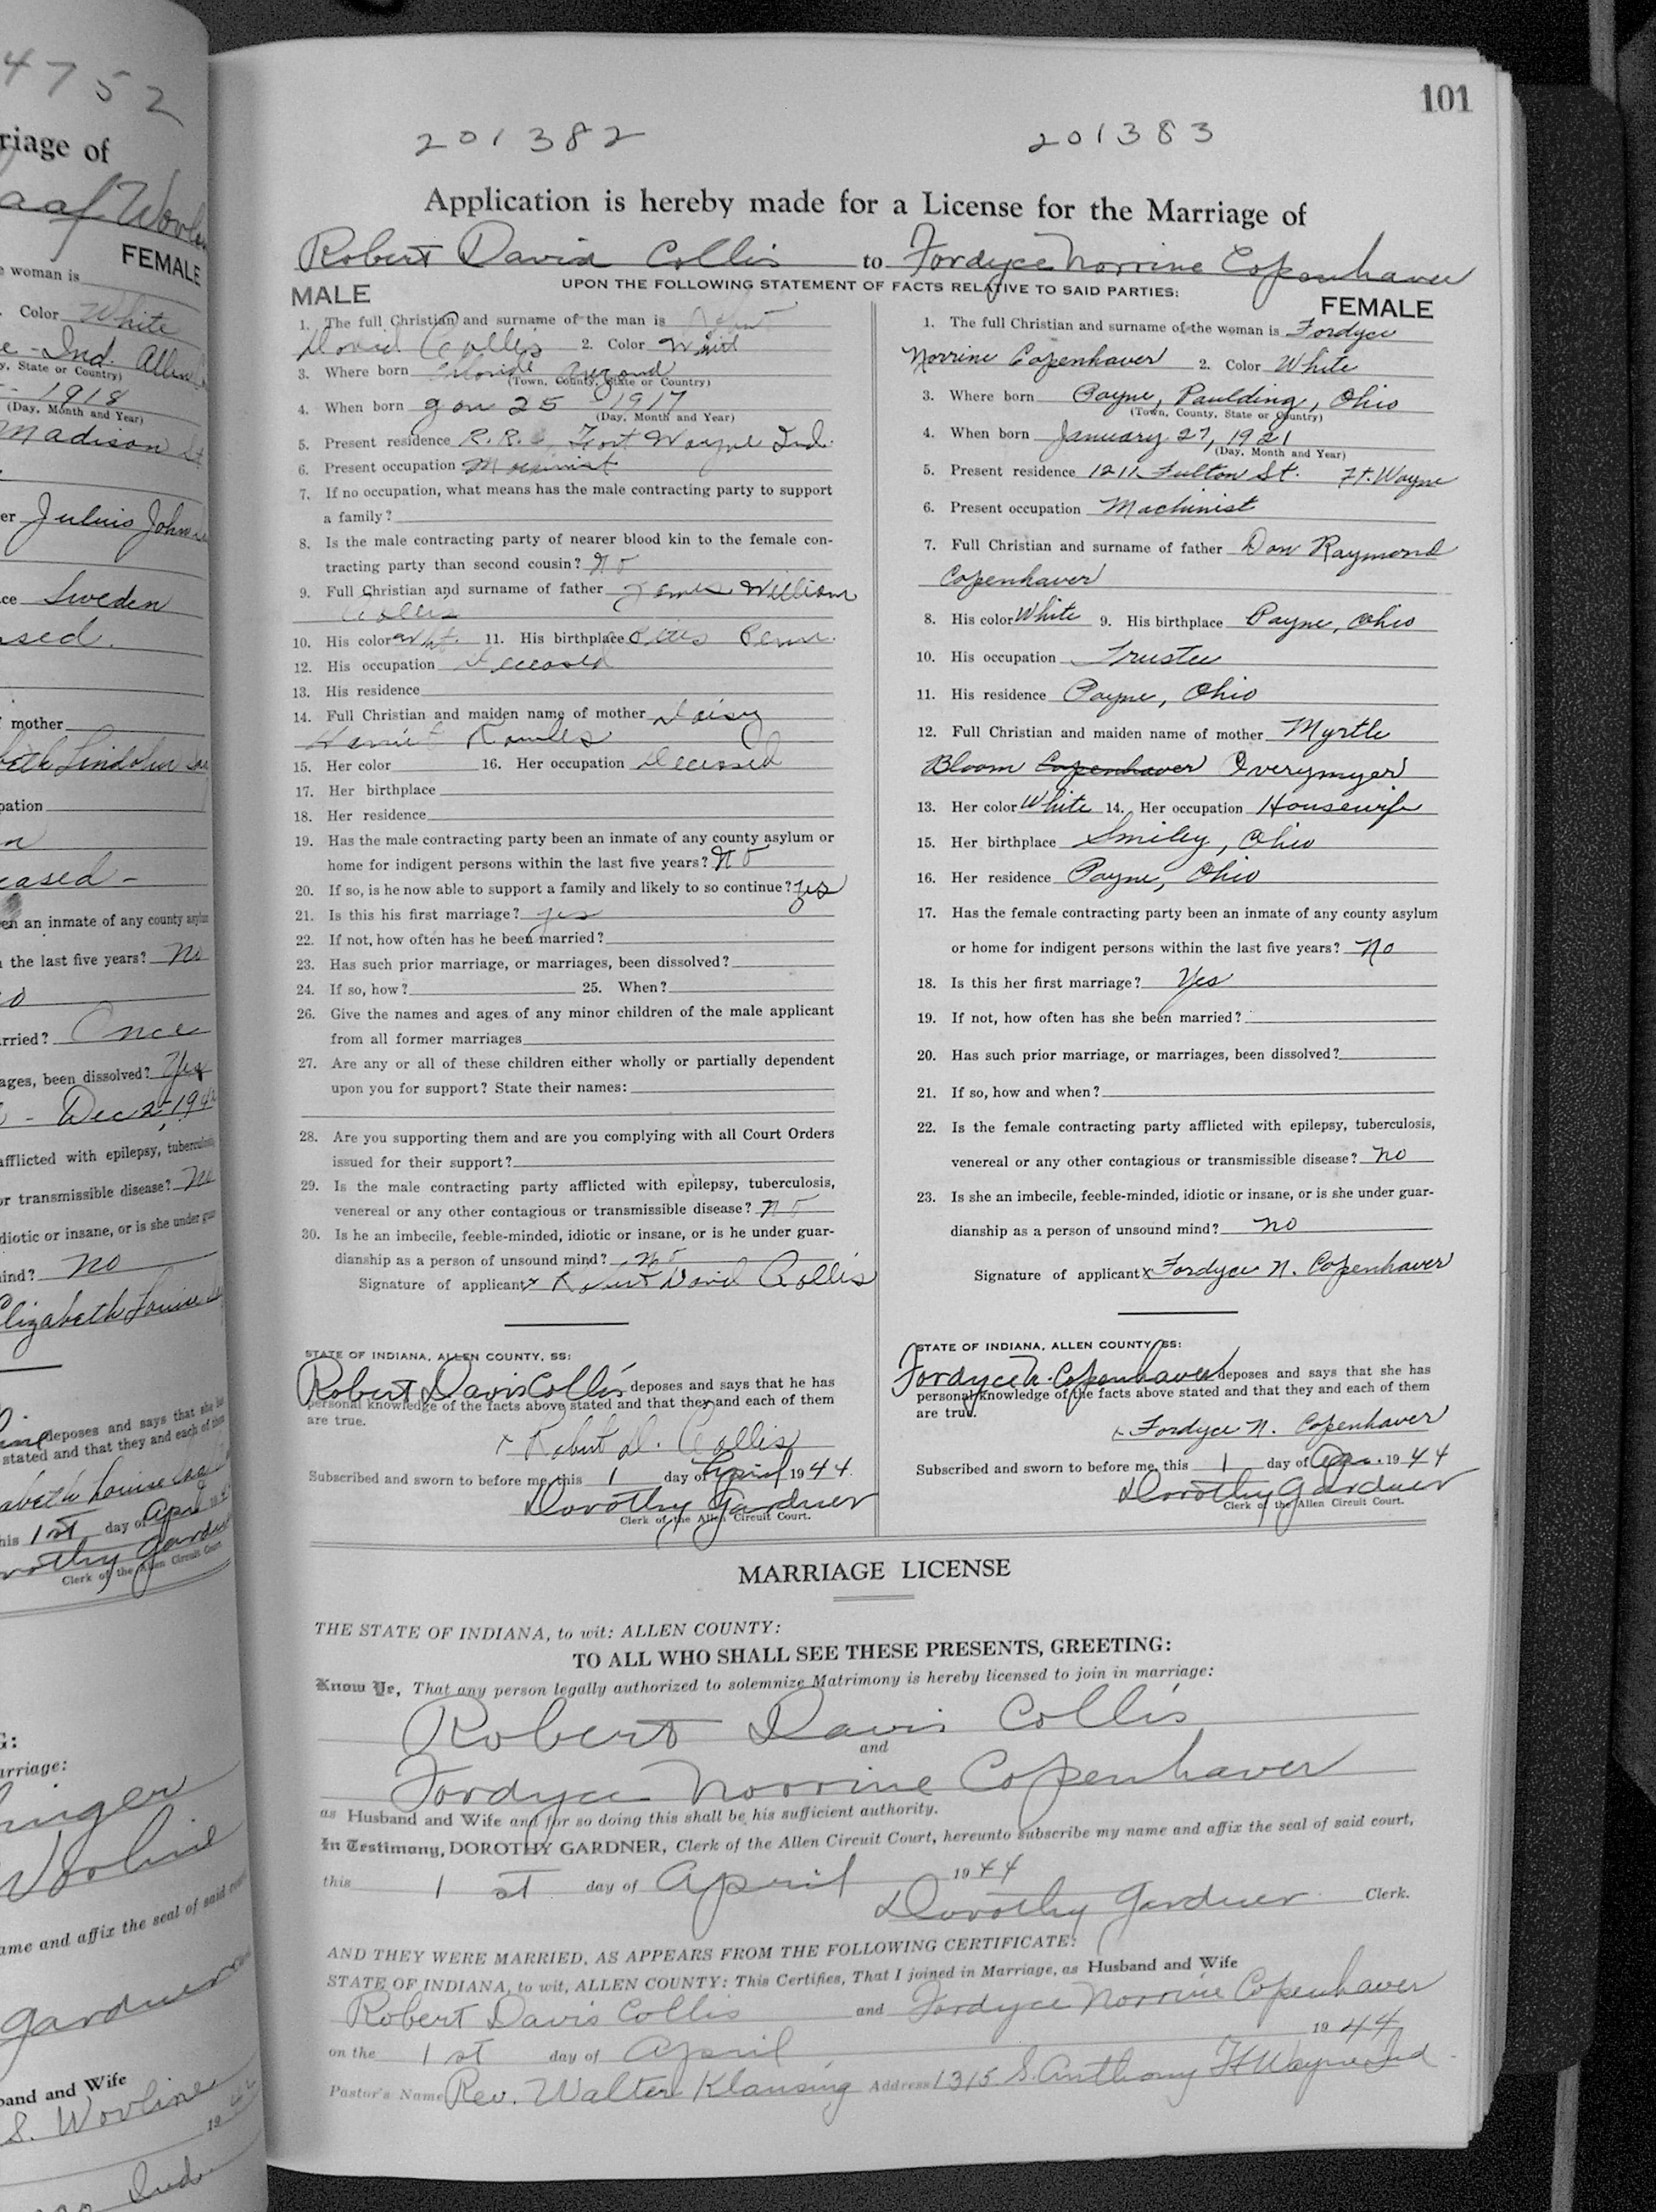 4752
riage of
aaf Wovlin
FEMALE
e woman is
Color White
e - Ind. Allen
y, State or Country)
1918
(Day, Month and Year)
Madison St
er Juluis Johns
ce Sweden
sed.
mother
beth Lindolm
pation
n
eased -
en an inmate of any county asylum
the last five years? No
o
rried? Once
ages, been dissolved? Yes
- Dec 2, 194
afflicted with epilepsy, tuberculosis
or transmissible disease? No
diotic or insane, or is she under guar
ind? No
Elizabeth Louise
deposes and says that she has
stated and that they and each of them
abeth Louise
his 1st day of Apr
rothy Gardner
Clerk of the Allen Circuit Court
G:
arriage:
inger
Wovline
ame and affix the seal of said court
Gardner
band and Wife
S. Wovline
19
Ind
101
201382 201383
Application is hereby made for a License for the Marriage of
Robert David Collis to Fordyce Norrine Copenhaver
UPON THE FOLLOWING STATEMENT OF FACTS RELATIVE TO SAID PARTIES:
MALE
1. The full Christian and surname of the man is Robert
David Collis 2. Color Whit
3. Where born
(Town, County, State or Country)
4. When born Jan 25 1917
(Day, Month and Year)
5. Present residence R.R. Fort Wayne Ind.
6. Present occupation Machinist
7. If no occupation, what means has the male contracting party to support
a family?
8. Is the male contracting party of nearer blood kin to the female con-
tracting party than second cousin? No
9. Full Christian and surname of father James William
Collis
10. His color Wht. 11. His birthplace Penn.
12. His occupation Deceased
13. His residence
14. Full Christian and maiden name of mother Daisy
Harriet
15. Her color 16. Her occupation Decessed
17. Her birthplace
18. Her residence
19. Has the male contracting party been an inmate of any county asylum or
home for indigent persons within the last five years? No
20. If so, is he now able to support a family and likely to so continue? yes
21. Is this his first marriage? yes
22. If not, how often has he been married?
23. Has such prior marriage, or marriages, been dissolved?
24. If so, how? 25. When?
26. Give the names and ages of any minor children of the male applicant
from all former marriages
27. Are any or all of these children either wholly or partially dependent
upon you for support? State their names:
28. Are you supporting them and are you complying with all Court Orders
issued for their support?
29. Is the male contracting party afflicted with epilepsy, tuberculosis,
venereal or any other contagious or transmissible disease? No
30. Is he an imbecile, feeble-minded, idiotic or insane, or is he under guar-
dianship as a person of unsound mind? No
Signature of applicant x Robert David Collis
STATE OF INDIANA, ALLEN COUNTY, SS:
Robert Davis Collis deposes and says that he has
personal knowledge of the facts above stated and that they and each of them
are true.
x Robert D. Collis
Subscribed and sworn to before me, this 1 day of April 1944.
Dorothy Gardner
Clerk of the Allen Circuit Court.
FEMALE
1. The full Christian and surname of the woman is Fordyce
Norrine Copenhaver 2. Color White
3. Where born Payne, Paulding, Ohio
(Town, County, State or Country)
4. When born January 27, 1921
(Day, Month and Year)
5. Present residence 1211 Fulton St. Ft. Wayne
6. Present occupation Machinist
7. Full Christian and surname of father Don Raymond
Copenhaver
8. His color White 9. His birthplace Payne, Ohio
10. His occupation Trustee
11. His residence Payne, Ohio
12. Full Christian and maiden name of mother Myrtle
Bloom Copenhaver Overymyer
13. Her color White 14. Her occupation Housewife
15. Her birthplace Smiley, Ohio
16. Her residence Payne, Ohio
17. Has the female contracting party been an inmate of any county asylum
or home for indigent persons within the last five years? No
18. Is this her first marriage? Yes
19. If not, how often has she been married?
20. Has such prior marriage, or marriages, been dissolved?
21. If so, how and when?
22. Is the female contracting party afflicted with epilepsy, tuberculosis,
venereal or any other contagious or transmissible disease? No
23. Is she an imbecile, feeble-minded, idiotic or insane, or is she under guar-
dianship as a person of unsound mind? No
Signature of applicant x Fordyce N. Copenhaver
STATE OF INDIANA, ALLEN COUNTY, SS:
Fordyce N. Copenhaver deposes and says that she has
personal knowledge of the facts above stated and that they and each of them
are true.
x Fordyce N. Copenhaver
Subscribed and sworn to before me, this 1 day of Apr. 1944
Dorothy Gardner
Clerk of the Allen Circuit Court.
MARRIAGE LICENSE
THE STATE OF INDIANA, to wit: ALLEN COUNTY:
TO ALL WHO SHALL SEE THESE PRESENTS, GREETING:
Know Ye, That any person legally authorized to solemnize Matrimony is hereby licensed to join in marriage:
Robert Davis Collis
and
Fordyce Norrine Copenhaver
as Husband and Wife and for so doing this shall be his sufficient authority.
In Testimony, DOROTHY GARDNER, Clerk of the Allen Circuit Court, hereunto subscribe my name and affix the seal of said court,
this 1 st day of April 1944
Dorothy Gardner Clerk.
AND THEY WERE MARRIED, AS APPEARS FROM THE FOLLOWING CERTIFICATE:
STATE OF INDIANA, to wit, ALLEN COUNTY: This Certifies, That I joined in Marriage, as Husband and Wife
Robert Davis Collis and Fordyce Norrine Copenhaver
on the 1 st day of April, 1944
Pastor's Name Rev. Walter Klausing Address 1315 S. Anthony Ft Wayne Ind